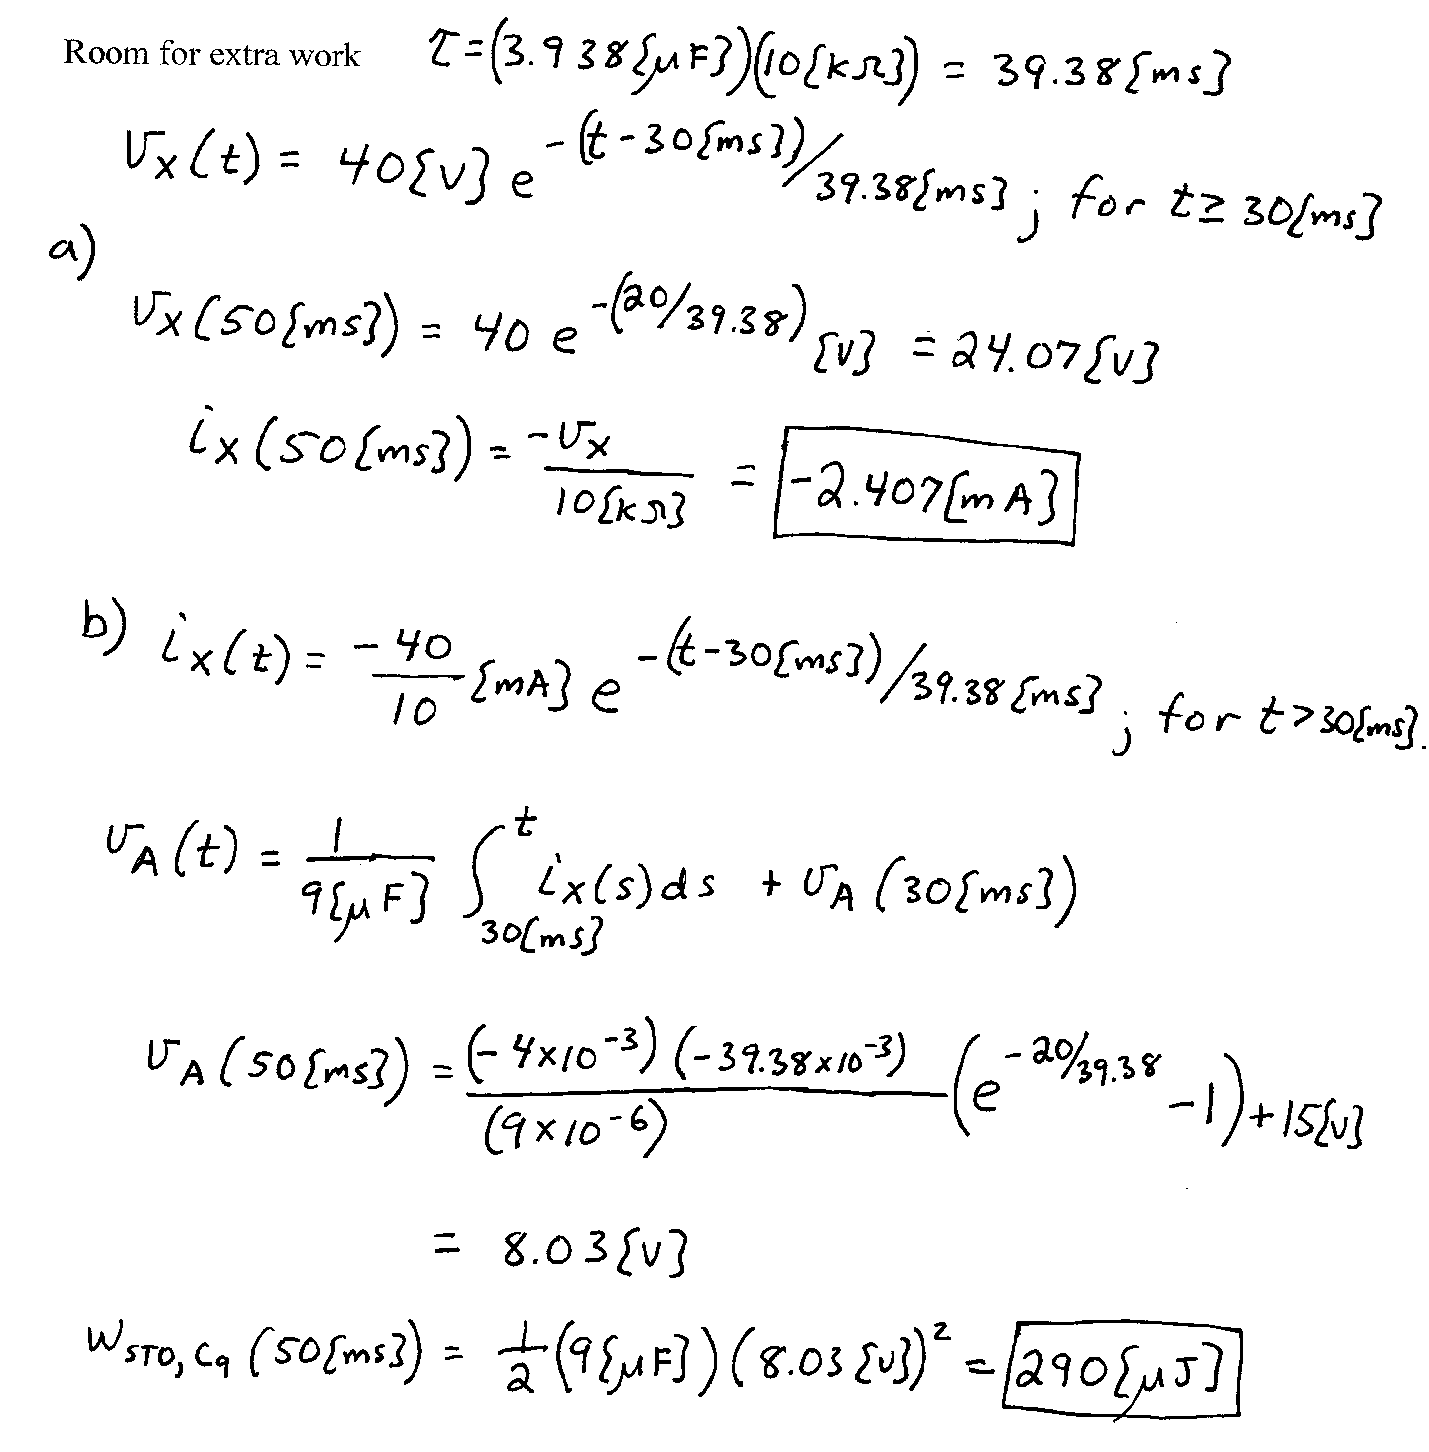 Room for extra work τ=(3.938{μF})(10{kΩ}) = 39.38{ms}
v_x(t) = 40{V} e^-(t-30{ms})/39.38{ms} ; for t≥30{ms}
a)
v_x(50{ms}) = 40 e^-(20/39.38) {V} = 24.07{V}
i_x(50{ms}) = -v_x/10{kΩ} = -2.407{mA}
b) i_x(t) = -40/10 {mA} e^-(t-30{ms})/39.38{ms} ; for t>30{ms}.
v_A(t) = 1/9{μF} ∫_30{ms}^t i_x(s)ds + v_A(30{ms})
v_A(50{ms}) = (-4×10^-3)(-39.38×10^-3)/(9×10^-6) (e^-20/39.38 -1)+15{V}
= 8.03{V}
w_STO,C9 (50{ms}) = 1/2 (9{μF})(8.03{V})^2 = 290{μJ}